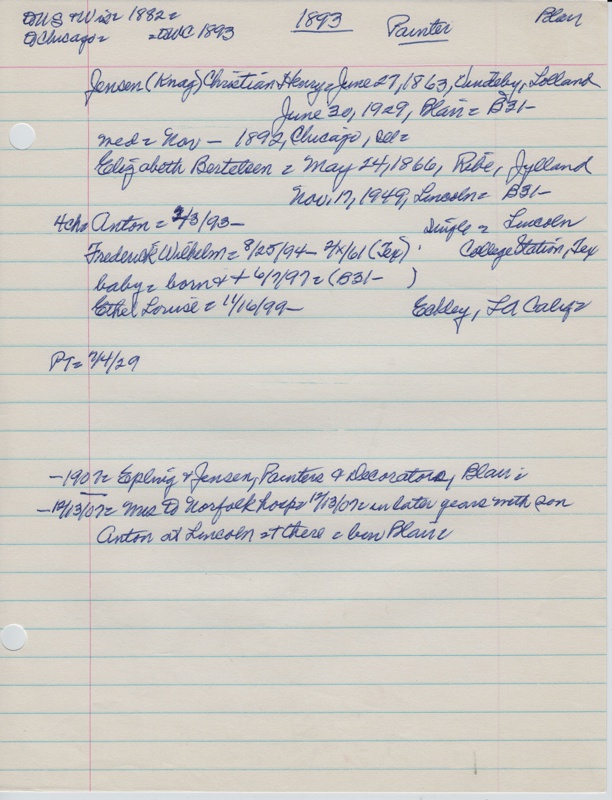 to US + Wis = 1882 =
to Chicago = = to WC 1893
1893
Painter
Blair
Jensen (Knag) Christian Henry = June 27, 1863, Lolland
June 30, 1929, Blair = B31-
med = Nov - 1892, Chicago,
Elizabeth Bertelsen = May 24, 1866, Ribe, Jylland
Nov. 17, 1949, Lincoln = B31-
4 chs Anton = 2/3/93- single = Lincoln
Frederick Wilhelm = 8/25/94- 2/x/61 (Tex) College Station, Tex
baby = born & + 6/7/97 = (B31- )
Ethel Louise = 11/16/99- Eckley, LA Calif =
PT = 7/4/29
-1907 = Epling & Jensen, Painters & Decorators, Blair =
-12/13/07 = Mrs to Norfolk hosp = 12/13/07 = in later years with son
Anton at Lincoln = + there = bur Blair =